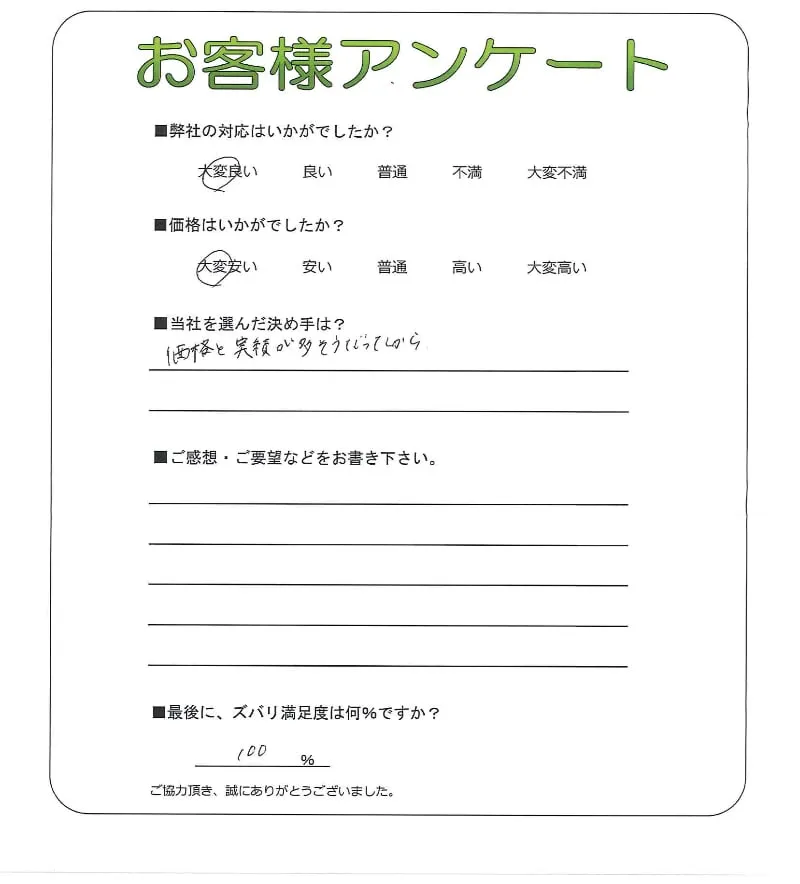 お客様アンケート
■弊社の対応はいかがでしたか？
大変良い 良い 普通 不満 大変不満
■価格はいかがでしたか？
大変安い 安い 普通 高い 大変高い
■当社を選んだ決め手は？
価格と実績が多そうだってから
■ご感想・ご要望などをお書き下さい。
■最後に、ズバリ満足度は何％ですか？
100 %
ご協力頂き、誠にありがとうございました。